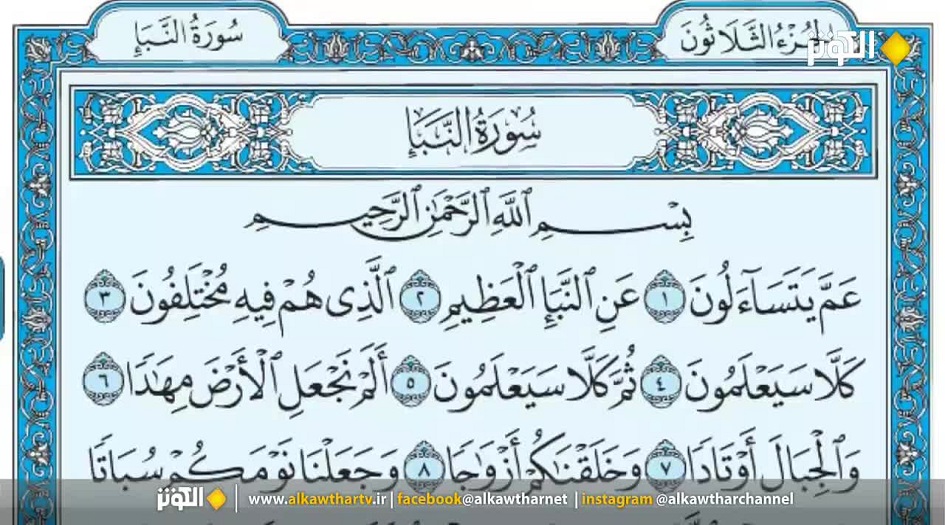 سُورَةُ النَّبَإِ
الجُزْءُ الثَّلَاثُونَ
الكوثر
سُورَةُ النَّبَإِ
بِسْمِ اللَّهِ الرَّحْمَٰنِ الرَّحِيمِ
عَمَّ يَتَسَاءَلُونَ ١ عَنِ النَّبَإِ الْعَظِيمِ ٢ الَّذِي هُمْ فِيهِ مُخْتَلِفُونَ ٣
كَلَّا سَيَعْلَمُونَ ٤ ثُمَّ كَلَّا سَيَعْلَمُونَ ٥ أَلَمْ نَجْعَلِ الْأَرْضَ مِهَادًا ٦
وَالْجِبَالَ أَوْتَادًا ٧ وَخَلَقْنَاكُمْ أَزْوَاجًا ٨ وَجَعَلْنَا نَوْمَكُمْ سُبَاتًا
الكوثر | www.alkawthartv.ir | facebook@alkawtharnet | instagram @alkawtharchannel